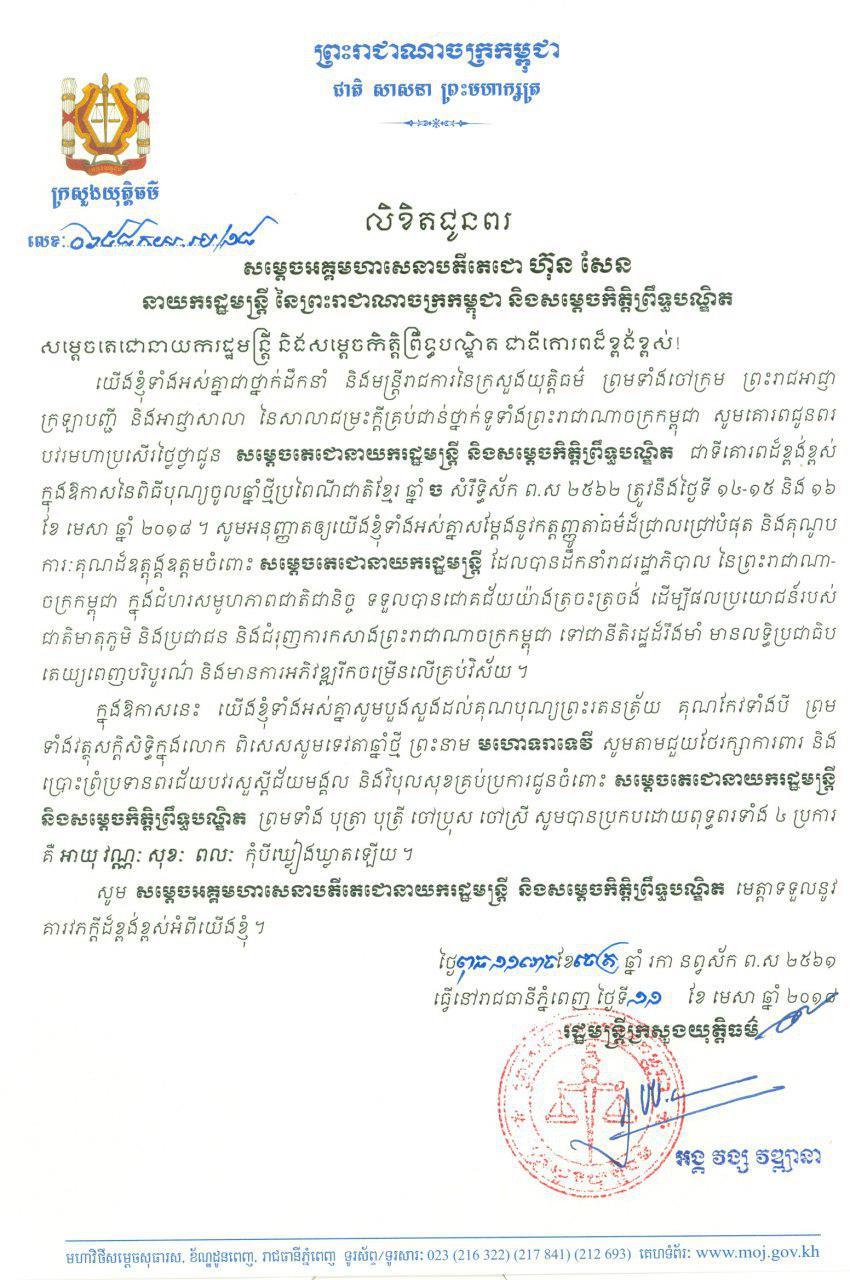 ព្រះរាជាណាចក្រកម្ពុជា
ជាតិ សាសនា ព្រះមហាក្សត្រ
ក្រសួងយុត្តិធម៌
លេខៈ
លិខិតជូនពរ
សម្តេចអគ្គមហាសេនាបតីតេជោ ហ៊ុន សែន
នាយករដ្ឋមន្ត្រី នៃព្រះរាជាណាចក្រកម្ពុជា និងសម្តេចកិត្តិព្រឹទ្ធបណ្ឌិត
សម្តេចតេជោនាយករដ្ឋមន្ត្រី និងសម្តេចកិត្តិព្រឹទ្ធបណ្ឌិត ជាទីគោរពដ៏ខ្ពង់ខ្ពស់!
យើងខ្ញុំទាំងអស់គ្នាជាថ្នាក់ដឹកនាំ និងមន្ត្រីរាជការនៃក្រសួងយុត្តិធម៌ ព្រមទាំងចៅក្រម ព្រះរាជអាជ្ញា
ក្រឡាបញ្ជី និងអាជ្ញាសាលា នៃសាលាជម្រះក្តីគ្រប់ជាន់ថ្នាក់ទូទាំងព្រះរាជាណាចក្រកម្ពុជា សូមគោរពជូនពរ
បវរមហាប្រសើរថ្លៃថ្លាជូន សម្តេចតេជោនាយករដ្ឋមន្ត្រី និងសម្តេចកិត្តិព្រឹទ្ធបណ្ឌិត ជាទីគោរពដ៏ខ្ពង់ខ្ពស់
ក្នុងឱកាសនៃពិធីបុណ្យចូលឆ្នាំថ្មីប្រពៃណីជាតិខ្មែរ ឆ្នាំ ច សំរឹទ្ធិស័ក ព.ស ២៥៦២ ត្រូវនឹងថ្ងៃទី ១៤-១៥ និង ១៦
ខែ មេសា ឆ្នាំ ២០១៨ ។ សូមអនុញ្ញាតឲ្យយើងខ្ញុំទាំងអស់គ្នាសម្តែងនូវកត្តញ្ញូតាធម៌ដ៏ជ្រាលជ្រៅបំផុត និងគុណូប
ការៈគុណដ៏ឧត្តុង្គឧត្តមចំពោះ សម្តេចតេជោនាយករដ្ឋមន្ត្រី ដែលបានដឹកនាំរាជរដ្ឋាភិបាល នៃព្រះរាជាណា-
ចក្រកម្ពុជា ក្នុងជំហរសមូហភាពជាតិជានិច្ច ទទួលបានជោគជ័យយ៉ាងត្រចះត្រចង់ ដើម្បីផលប្រយោជន៍របស់
ជាតិមាតុភូមិ និងប្រជាជន និងជំរុញការកសាងព្រះរាជាណាចក្រកម្ពុជា ទៅជានីតិរដ្ឋដ៏រឹងមាំ មានលទ្ធិប្រជាធិប
តេយ្យពេញបរិបូរណ៍ និងមានការអភិវឌ្ឍរីកចម្រើនលើគ្រប់វិស័យ ។
ក្នុងឱកាសនេះ យើងខ្ញុំទាំងអស់គ្នាសូមបួងសួងដល់គុណបុណ្យព្រះរតនត្រ័យ គុណកែវទាំងបី ព្រម
ទាំងវត្ថុសក្តិសិទ្ធិក្នុងលោក ពិសេសសូមទេវតាឆ្នាំថ្មី ព្រះនាម មហោទរាទេវី សូមតាមជួយថែរក្សាការពារ និង
ប្រោះព្រំប្រទានពរជ័យបវរសួស្តីជ័យមង្គល និងវិបុលសុខគ្រប់ប្រការជូនចំពោះ សម្តេចតេជោនាយករដ្ឋមន្ត្រី
និងសម្តេចកិត្តិព្រឹទ្ធបណ្ឌិត ព្រមទាំង បុត្រា បុត្រី ចៅប្រុស ចៅស្រី សូមបានប្រកបដោយពុទ្ធពរទាំង ៤ ប្រការ
គឺ អាយុ វណ្ណៈ សុខៈ ពលៈ កុំបីឃ្លៀងឃ្លាតឡើយ ។
សូម សម្តេចអគ្គមហាសេនាបតីតេជោនាយករដ្ឋមន្ត្រី និងសម្តេចកិត្តិព្រឹទ្ធបណ្ឌិត មេត្តាទទួលនូវ
គារវភក្តីដ៏ខ្ពង់ខ្ពស់អំពីយើងខ្ញុំ ។
ថ្ងៃពុធ ១១រោច ខែចេត្រ ឆ្នាំ រកា នព្វស័ក ព.ស ២៥៦១
ធ្វើនៅរាជធានីភ្នំពេញ ថ្ងៃទី ១១ ខែ មេសា ឆ្នាំ ២០១៨
រដ្ឋមន្ត្រីក្រសួងយុត្តិធម៌
អង្គ វង្ស វឌ្ឍានា
មហាវិថីសម្តេចសុធារស, ខ័ណ្ឌដូនពេញ, រាជធានីភ្នំពេញ ទូរស័ព្ទ/ទូរសារ: 023 (216 322) (217 841) (212 693) គេហទំព័រ: www.moj.gov.kh